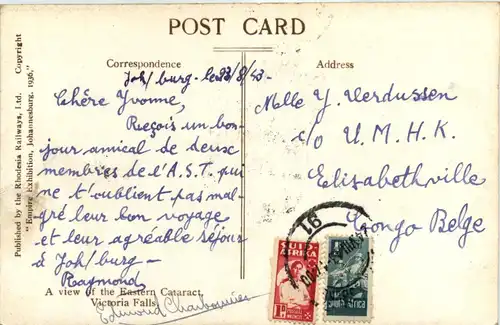 POST CARD
Correspondence
Address
Joh/burg - le 23/8/43 -
Chère Yvonne,
Reçois un bon-
jour amical de deux
membres de l'A.S.T. qui
ne t'oublient pas mal-
gré leur bon voyage
et leur agréable séjour
à Joh/burg -
Raymond
Edmond Charbonnier
Mlle Y. Verdussen
c/o U.M.H.K.
Elisabethville
Congo Belge
Published by the Rhodesia Railways, Ltd. Copyright
"Empire Exhibition, Johannesburg, 1936."
A view of the Eastern Cataract,
Victoria Falls
SUID-
AFRIKA
1D
16